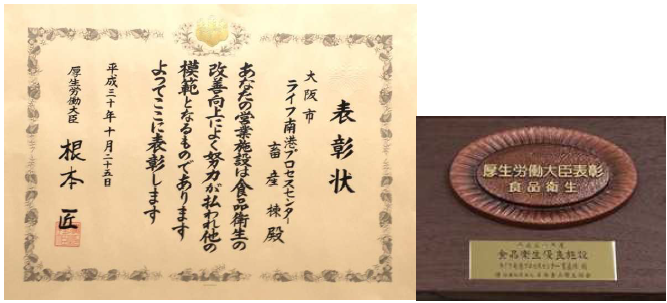 表彰状
大阪市
ライフ南港プロセスセンター
畜産棟殿
あなたの営業施設は食品衛生の
改善向上によく努力が払われ他の
模範となるものであります
よってここに表彰します
平成三十年十月二十五日
厚生労働大臣
根本匠
厚生労働大臣表彰
食品衛生
食品衛生優良施設